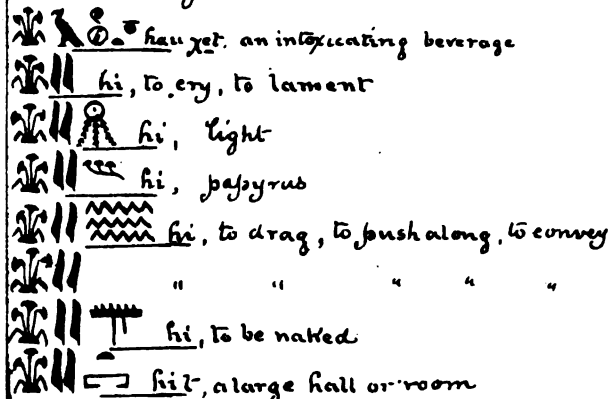 hauχet. an intoxicating beverage
hi, to cry, to lament
hi, light
hi, papyrus
hi, to drag, to push along, to convey
" " " " "
hi, to be naked
hit, a large hall or room